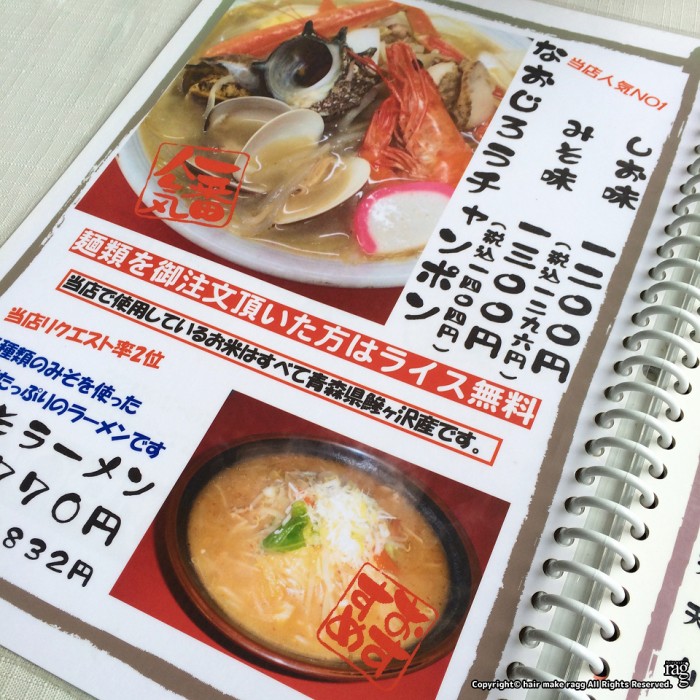 当店人気NO1
なおじろうチャンポン
しお味 一二〇〇円
(税込一二九六円)
みそ味 一三〇〇円
(税込一四〇四円)
一番人気メし
麺類を御注文頂いた方はライス無料
当店で使用しているお米はすべて青森県鰺ヶ沢産です。
当店リクエスト率2位
種類のみそを使った
たっぷりのラーメンです
そラーメン
770円
832円
おすすめ
ragg
Copyright© hair make ragg All Rights Reserved.